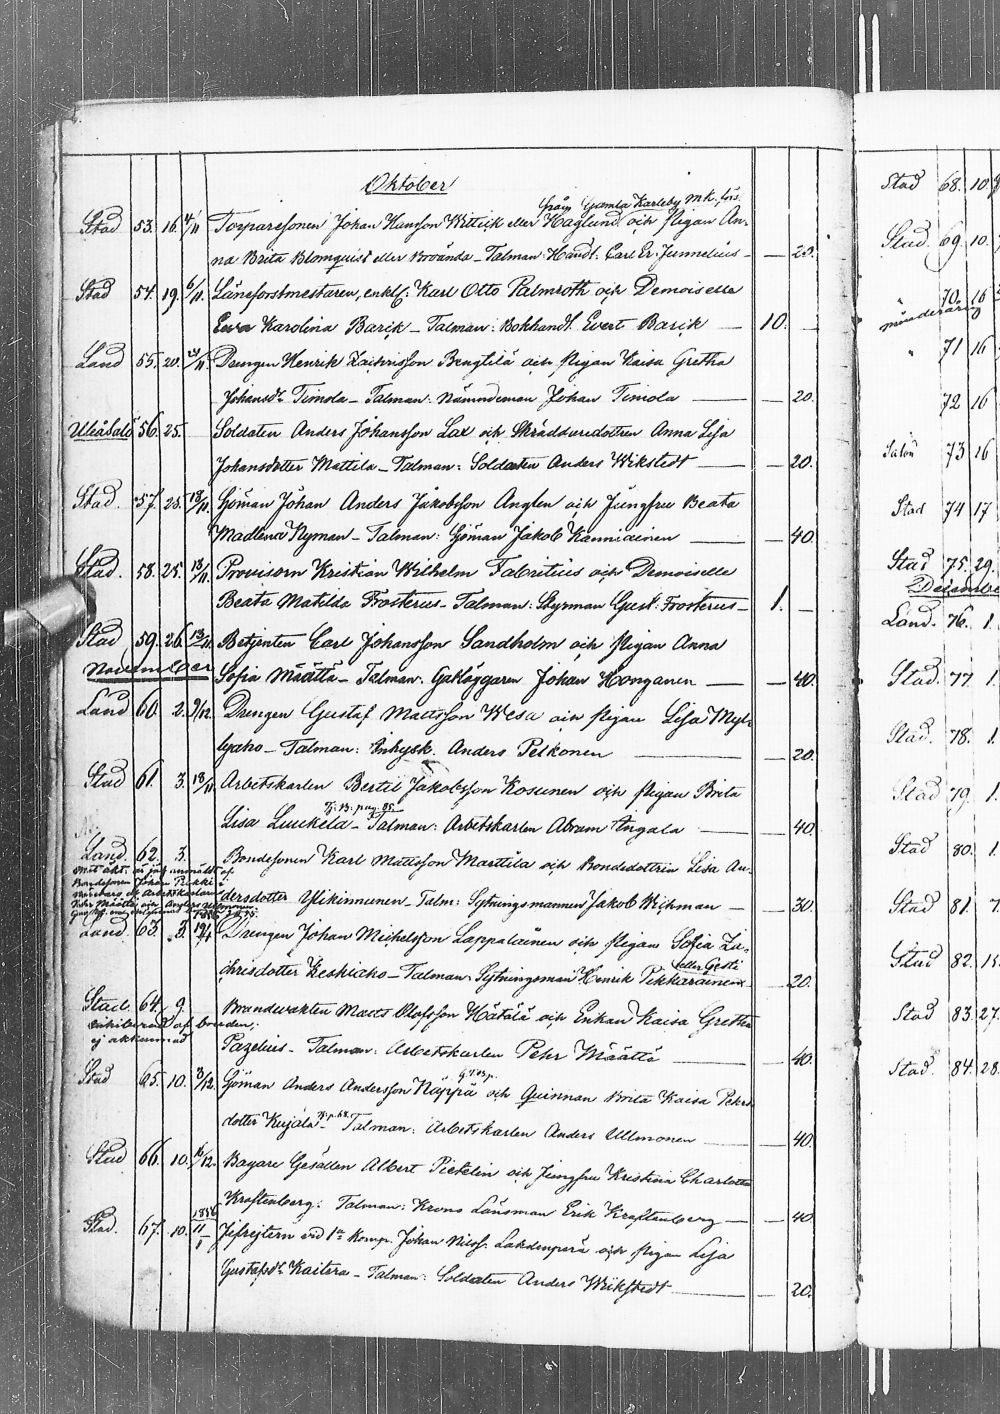 Oktober
från Gamla Karleby mk. förs.
Stad 53. 16. 4/11 Torparesonen Johan Hansson Wittick eller Haglund och Pigan An-
na Brita Blomquist eller Brovända – Talman: Handl: Carl Er: Junnelius – — 20.
Stad 54. 19. 6/11. Länsforstmestaren, enkl: Karl Otto Palmroth och Demoiselle
Eva Karolina Barck – Talman: Bokhandl. Evert Barck — 10. —
Land 55. 20. /11. Drengen Henrik Zachrisson Bengtilä och Pigan Kaisa Gretha
Johansdr Timola – Talman: Nämndeman Johan Timola — — 20.
Uleåsalo 56. 25. Soldaten Anders Johansson Lax och Skräddaredottren Anna Lisa
Johansdotter Mattila – Talman: Soldaten Anders Wikstedt — — 20.
Stad. 57. 25. 13/11. Sjöman Johan Anders Jakobsson Anglen och Jungfru Beata
Madlena Nyman – Talman: Sjöman Jakob Kanniainen — — 40.
Stad. 58. 25. 13/11. Provisorn Kristian Wilhelm Fabritius och Demoiselle
Beata Matilda Frosterus – Talman: Styrman Gust: Frosterus – 1. —
Stad 59. 26. 13/11. Betjenten Carl Johansson Sandholm och Pigan Anna
November
Sofia Määttä – Talman: Gatläggaren Johan Honganen — — 40.
Land 60. 2. 9/12. Drengen Gustaf Mattsson Wesa och Pigan Lisa Myl-
lyaho – Talman: Inhysk. Anders Pelkonen — — 20.
Stad 61. 3. 18/11 Arbetskarlen Bertil Jakobsson Kosunen och Pigan Brita
Lisa Luukela – Talman: Arbetskarlen Abram Angala — — 40.
Land. 62. 3. Bondesonen Karl Mattsson Marttila och Bondedottren Lisa An-
Bondesonen Johan Pikki
dersdotter Ylikinnunen – Talm: Sytningsmannen Jakob Wichman — — 30.
Land. 63. 3. Drengen Johan Michelsson Lappalainen och Pigan Sofia Za-
eller Gesti
chrisdotter Keskiaho – Talman: Sytningsman Henrik Pikkarainen – — 20.
Stad 64. 9. Brandwakten Matts Olofsson Hätälä och Enkan Kaisa Gretha
af bruden;
ej akkumad
Pazelius – Talman: Arbetskarlen Pehr Määttä — — 40.
Stad 65. 10. 3/12. Sjöman Anders Andersson Näppä och Quinnan Brita Kaisa Pehrs-
dotter Kujala – Talman: Arbetskarlen Anders Ullmonen — — 40.
Stad 66. 10. /12. Bagare Gesällen Albert Pietelin och Jungfru Kristina Charlotta
Kraftenberg: Talman: Krono Länsman Erik Kraftenberg — — 40.
1836
Stad. 67. 10. 11/1 Jefrejtern vid 1a Komp. Johan Nilss. Lakdenperä och Pigan Lisa
Gustafsdr Kaitera – Talman: Soldaten Anders Wikstedt — — 20.
Stad 68. 10.
Stad. 69. 10.
" 70. 16
" 71 16
72 16
73 16
Stad 74 17
Stad 75. 29.
December
Land. 76. 1.
Stad. 77. 1.
Stad. 78. 1.
Stad 79. 1.
Stad 80. 1.
Stad 81. 7.
Stad 82. 15.
Stad 83. 27.
Stad. 84. 28.